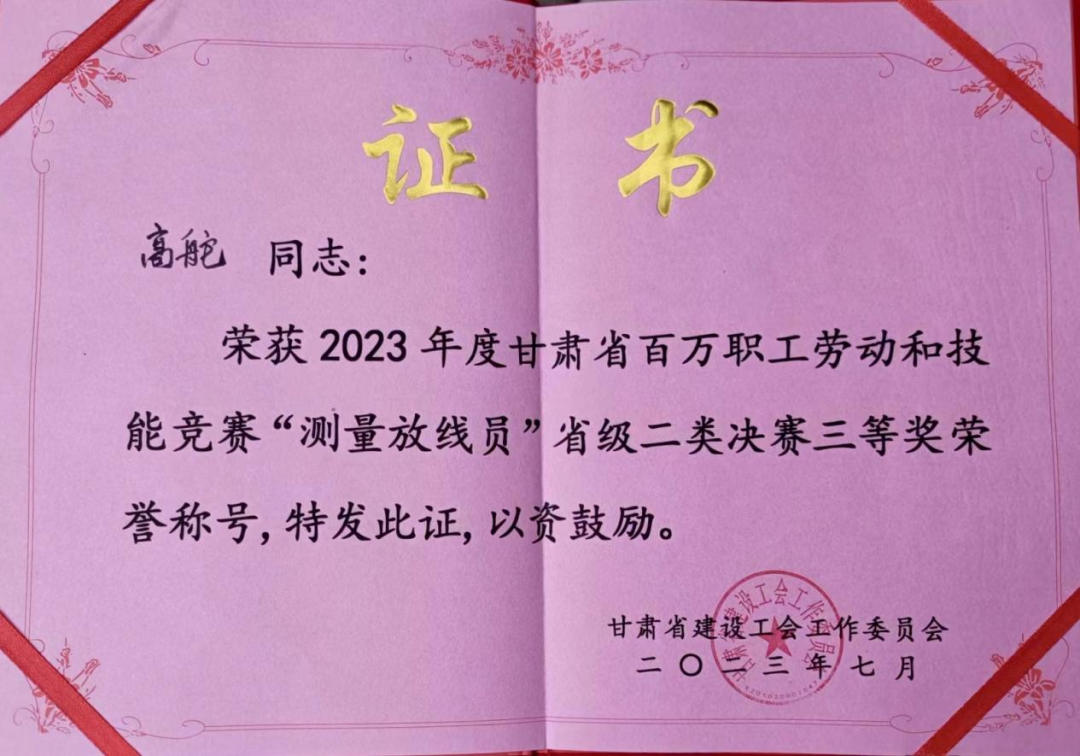 证 书
高舵 同志：
荣获 2023 年度甘肃省百万职工劳动和技
能竞赛“测量放线员”省级二类决赛三等奖荣
誉称号，特发此证，以资鼓励。
甘肃省建设工会工作委员会
二〇二三年七月
甘肃省建设工会工作委员会